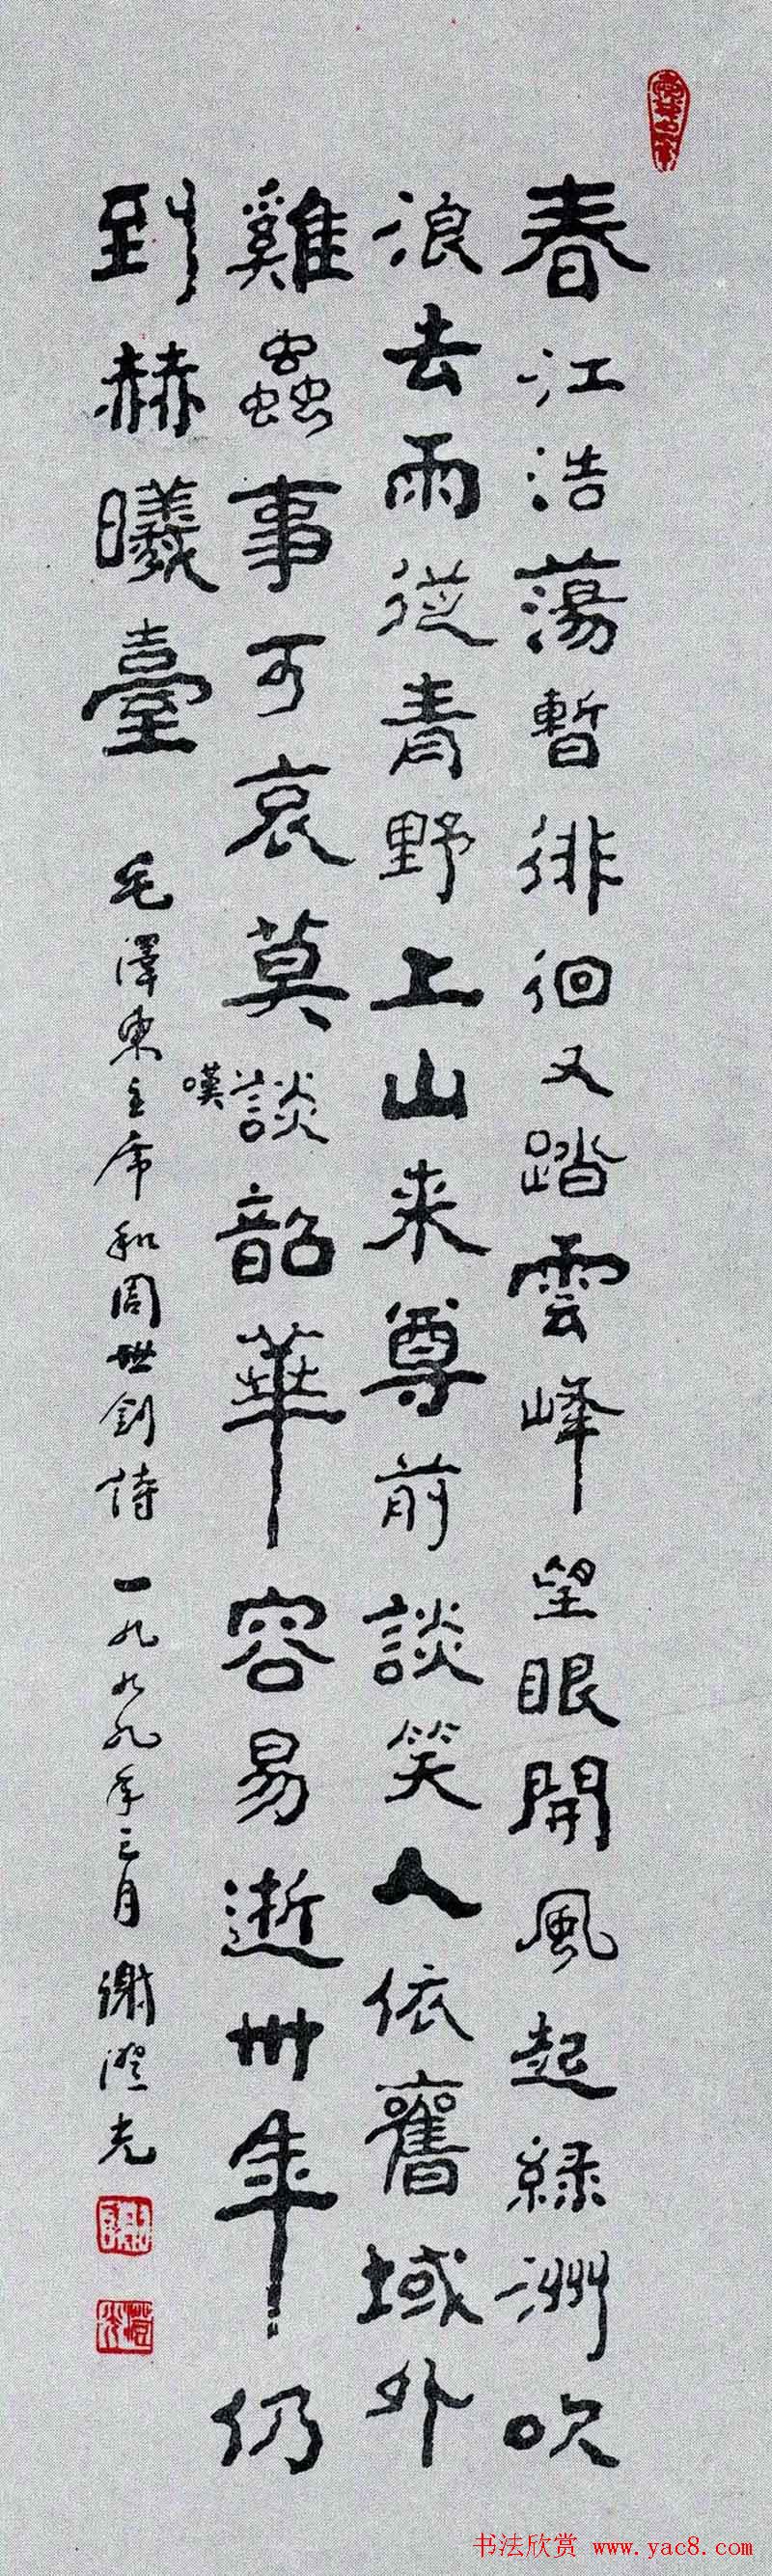 春江浩蕩暫徘徊又踏雲峰望眼開風起緑洲吹
浪去雨從青野上山来尊前談笑人依舊域外
雞蟲事可哀莫談韶華容易逝卅年仍
嘆
到赫曦臺 毛澤東主席和周世釗詩 一九九九年三月 謝澄光
书法欣赏 www.yac8.com